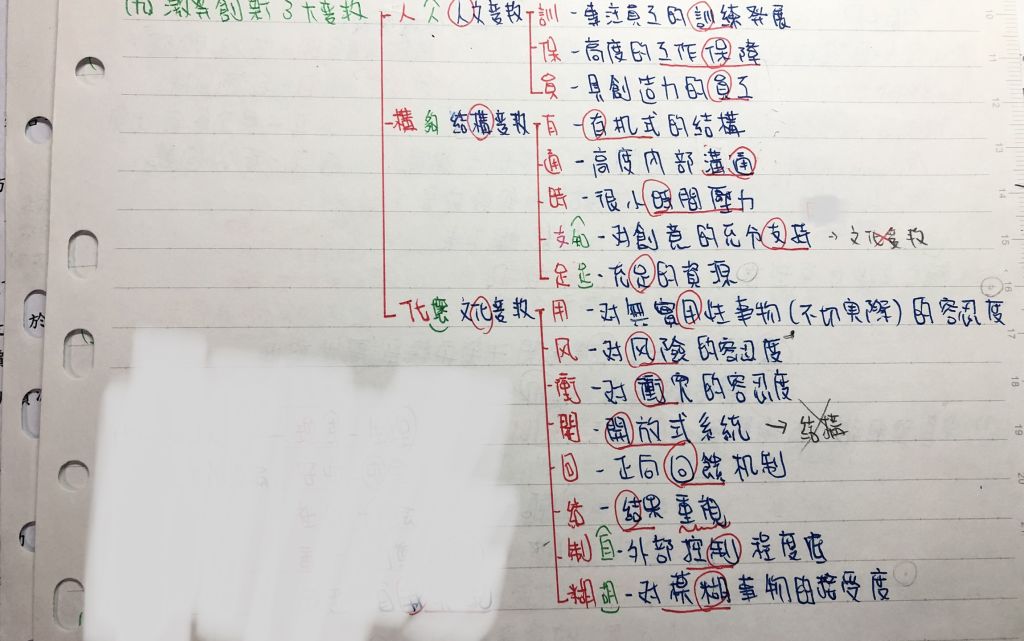 (九) 激發創新3大變數 人 人 人文變數 訓 - 專注員工的訓練發展
保 - 高度的工作保障
員 - 具創造力的員工
構 夠 結構變數 有 - 有机式的結構
通 - 高度內部溝通
時 - 很小時間壓力
支 - 对創意的充分支持 → 文化變數
足 足 - 充足的資源
化 文化變數 用 - 对無實用性事物(不切実際)的容忍度
风 - 对风險的容忍度
衝 - 对衝突的容忍度
開 - 開放式系統 → 結構
回 - 正向回饋机制
結 - 結果重視
制 自 - 外部控制程度低
糊 胡 - 对模糊事物的接受度
於